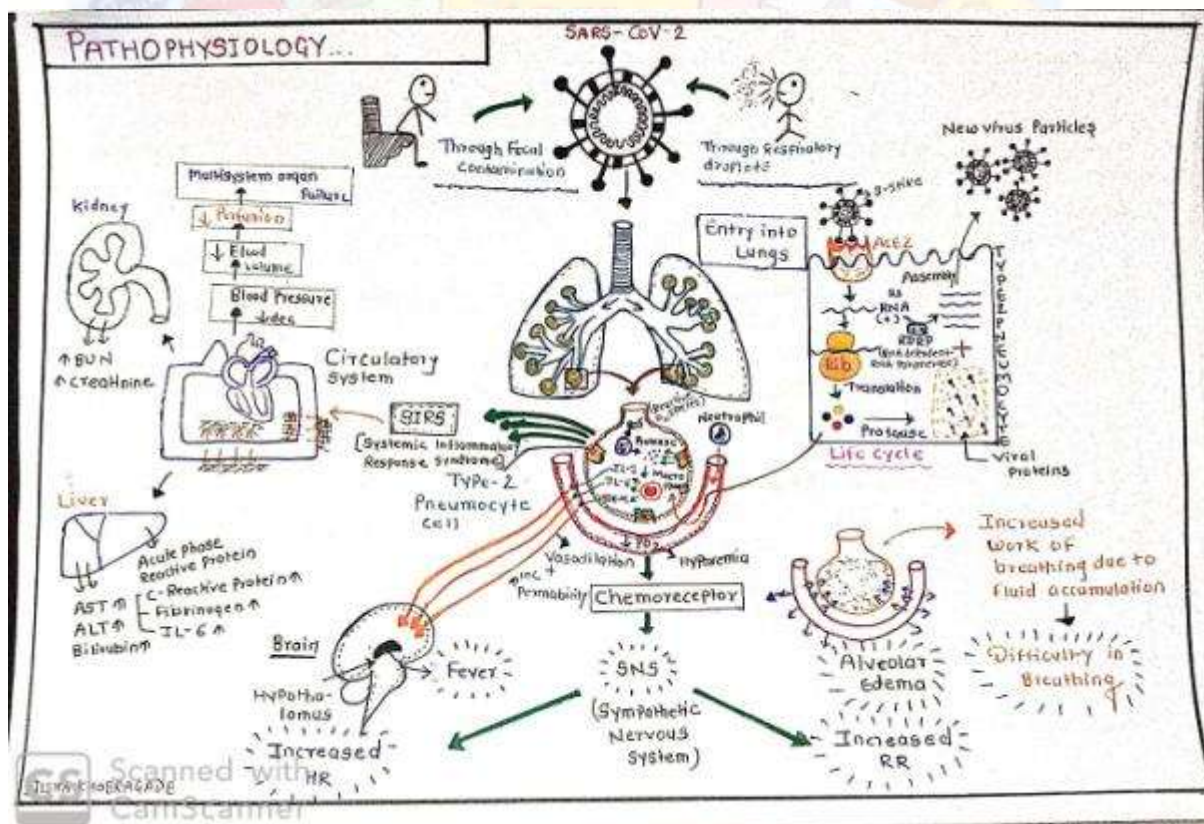 PATHOPHYSIOLOGY...
SARS-CoV-2
Through Fecal
Contamination
Through Respiratory
droplets
New Virus Particles
S-spike
ACE2
Entry into
Lungs
Assembly
RNA
(+)
RDRP
Rib
Translation
Protease
Life Cycle
Viral
Proteins
TYPE 2 PNEUMOCYTE
Multisystem organ
Failure
↓ Perfusion
↓ Blood
Volume
Blood Pressure
Kidney
↑ BUN
↑ Creatinine
Circulatory
system
SIRS
[Systemic Inflammatory
Response Syndrome]
Type-2
Pneumocyte
Cell
Neutrophil
Macro
IL-6
PO2
Vasodilation
+
↑ Inc
Permability
Hyperemia
Chemoreceptor
Liver
Acute phase
Reactive Protein
C-Reactive Protein ↑
Fibrinogen ↑
IL-6 ↑
AST ↑
ALT ↑
Bilirubin ↑
Brain
Hypotha-
lamus
Fever
SNS
(Sympathetic
Nervous
System)
Increased
HR
Increased
RR
Alveolar
Edema
Increased
work of
breathing due to
fluid accumulation
Difficulty in
Breathing
CS
Scanned with
CamScanner